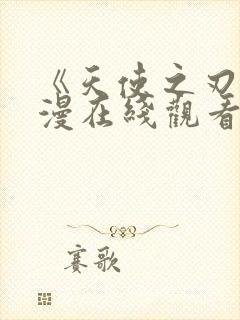 《天使之刃
漫在綫觀看
賽歌